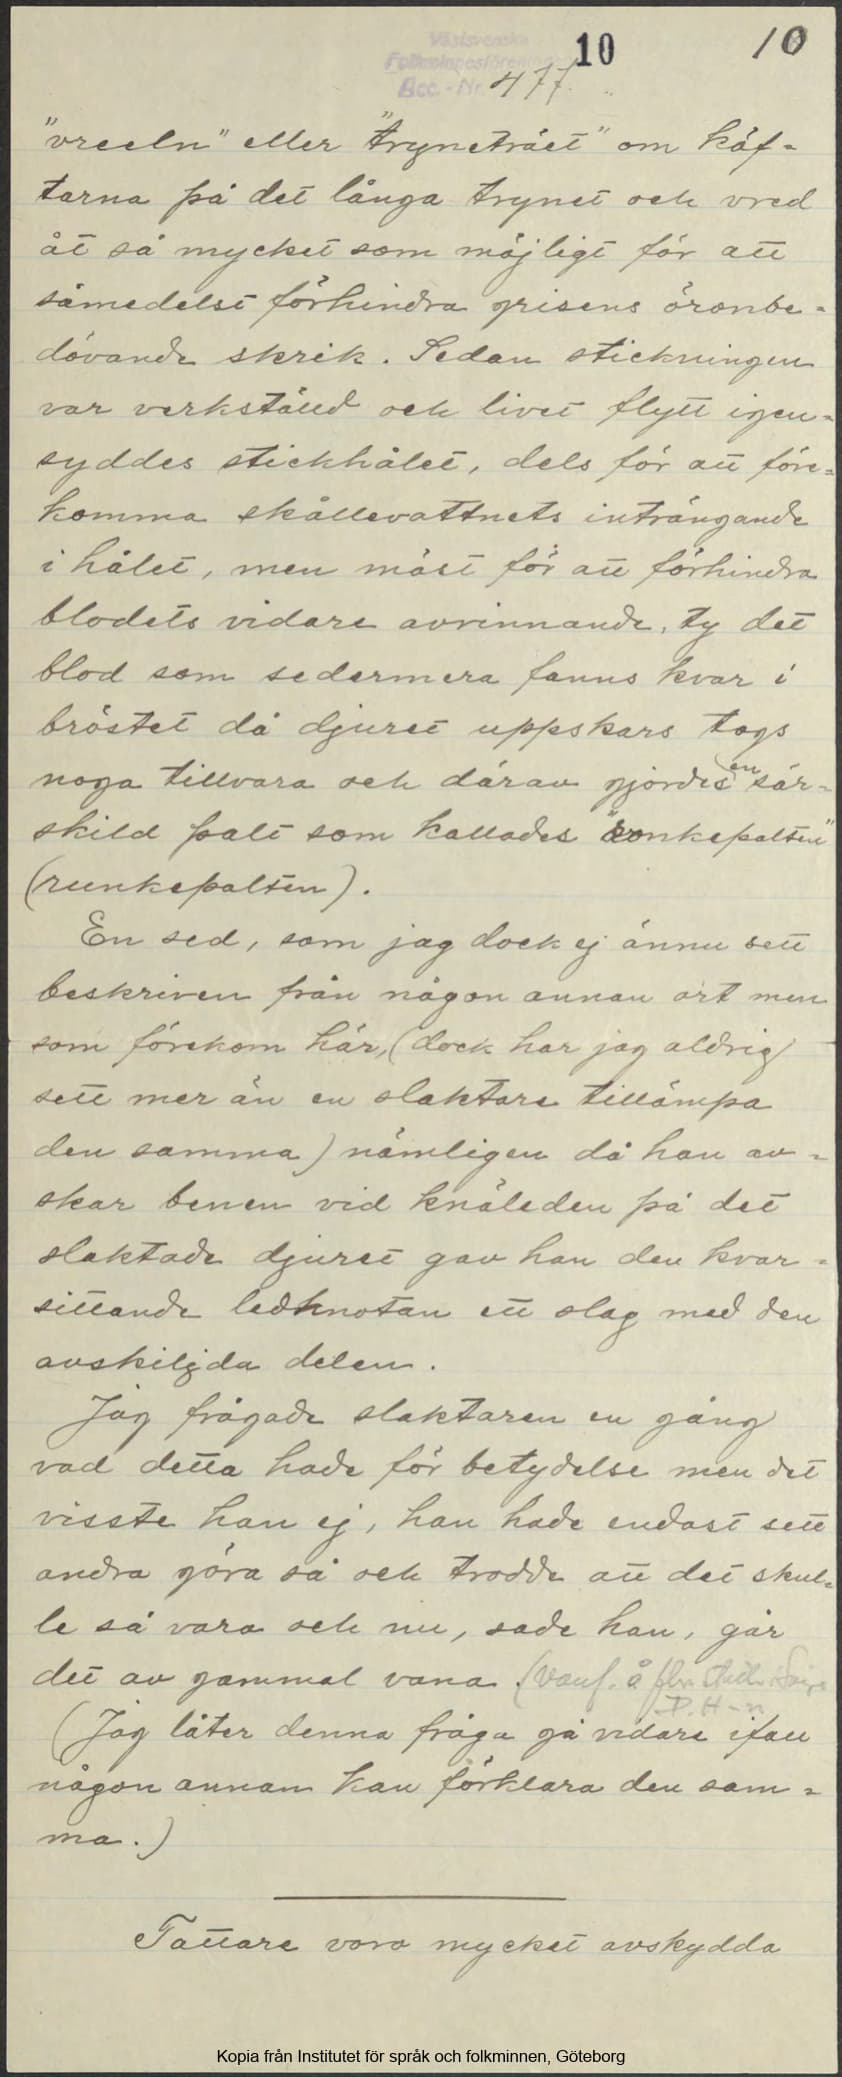 Västsvenska
Folkminnesföreningen
Acc.-Nr. 477.
10
10
"vreeln" eller "tryneträet" om käf-
tarna på det långa trynet och vred
åt så mycket som möjligt för att
såmedelst förhindra grisens öronbe-
dövande skrik. Sedan stickningen
var verkställd och livet flytt igen-
syddes stickhålet, dels för att före-
komma skållevattnets inträngande
i hålet, men mäst för att förhindra
blodets vidare avrinnande, ty det
blod som sedermera fanns kvar i
bröstet då djuret uppskars togs
noga tillvara och därav gjordes en sär-
skild palt som kallades "ronkepalten"
(runkepalten).
En sed, som jag dock ej ännu sett
beskriven från någon annan ort men
som förekom här, (dock har jag aldrig
sett mer än en slaktare tillämpa
den samma) nämligen då han av-
skar benen vid knäleden på det
slaktade djuret gav han den kvar-
sittande ledknotan ett slag med den
avskiljda delen.
Jag frågade slaktaren en gång
vad detta hade för betydelse men det
visste han ej, han hade endast sett
andra göra så och trodde att det skul-
le så vara och nu, sade han, går
det av gammal vana. (Vanl. å fln
D. H-n
(Jag låter denna fråga gå vidare ifall
någon annan kan förklara den sam-
ma.)
Tattare voro mycket avskydda
Kopia från Institutet för språk och folkminnen, Göteborg